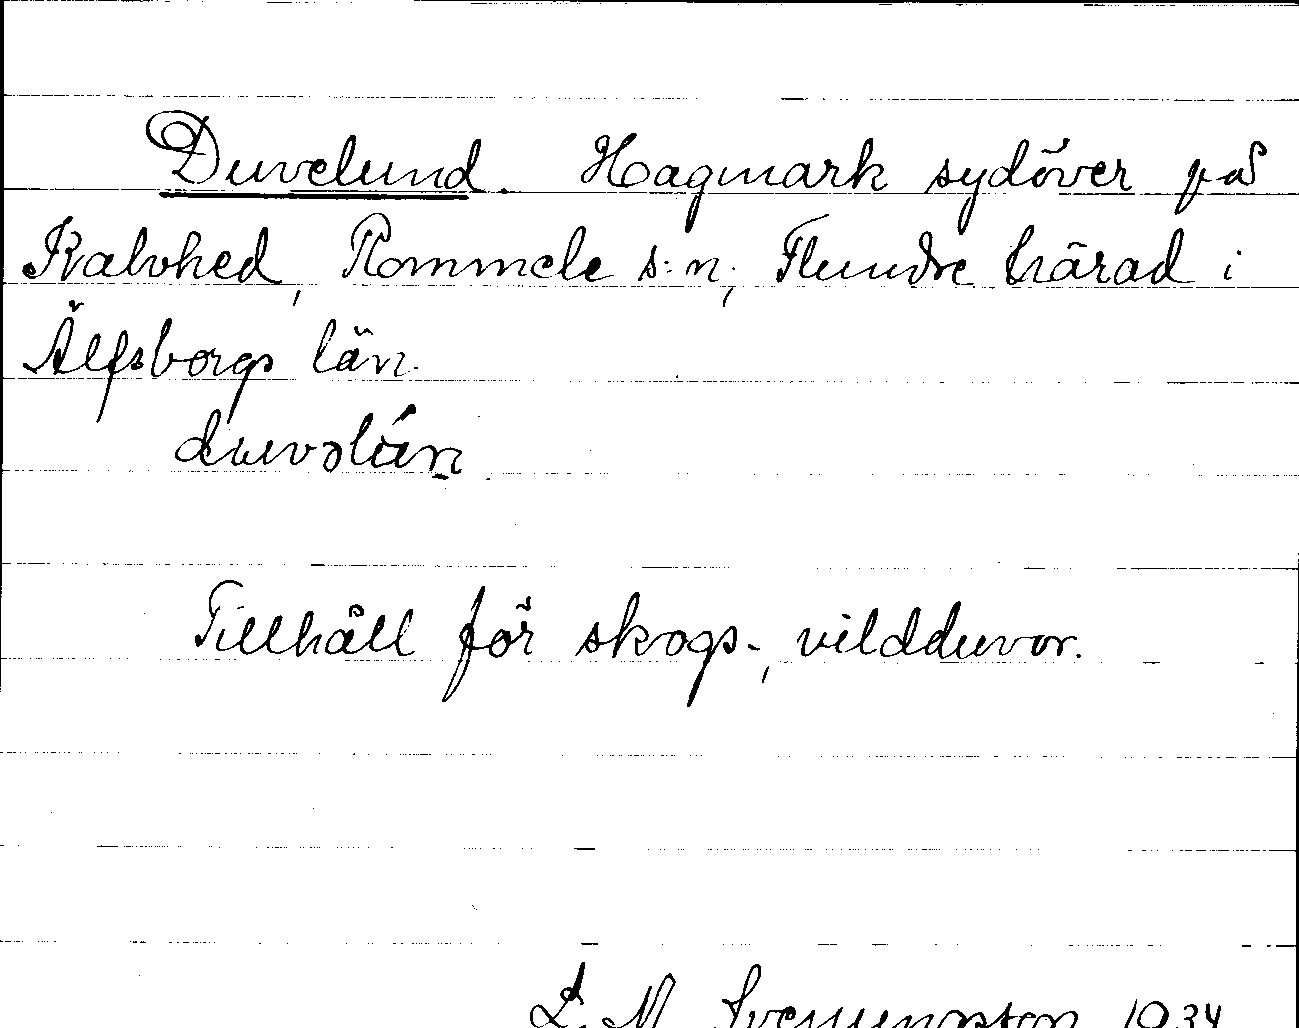 Duvelund. Hagmark sydöver på
Kalvhed, Rommele s:n, Flundre härad i
Älfsborgs län.
Tillhåll för skogs-, vildduvor.
L. M. Svenungsson 1934